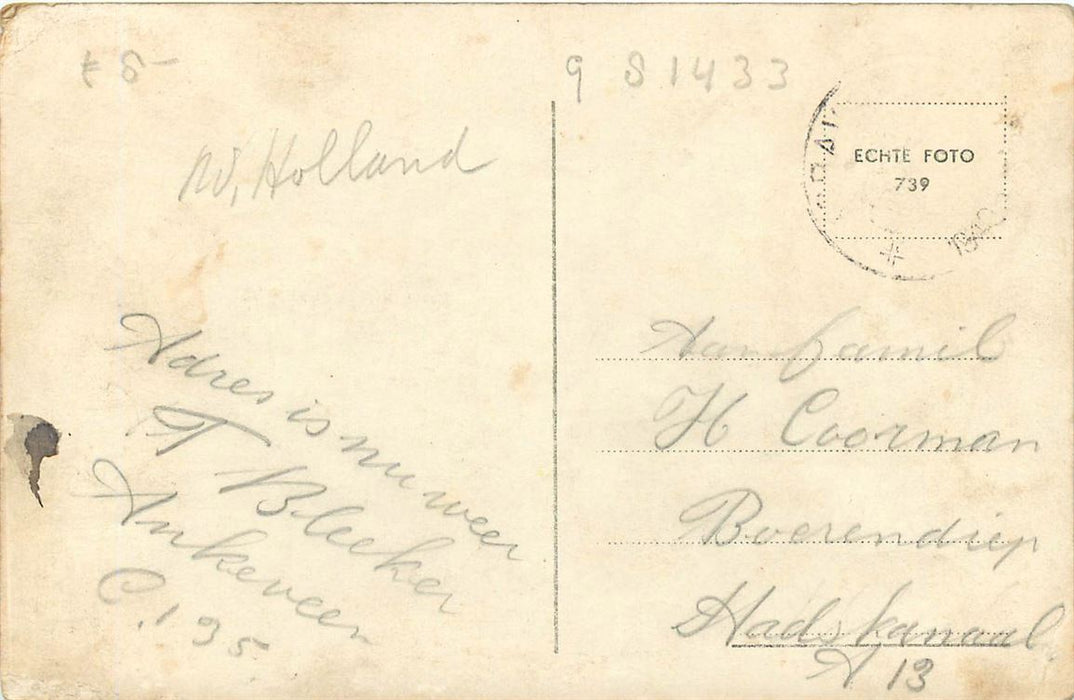 € 5-
9 S1433
N, Holland
ECHTE FOTO
739
1940
Adres is nu weer
T Bleeker
Ankeveen
C. 135.
Aan famil
H Coorman
Boerendiep
Stadskanaal
A 13